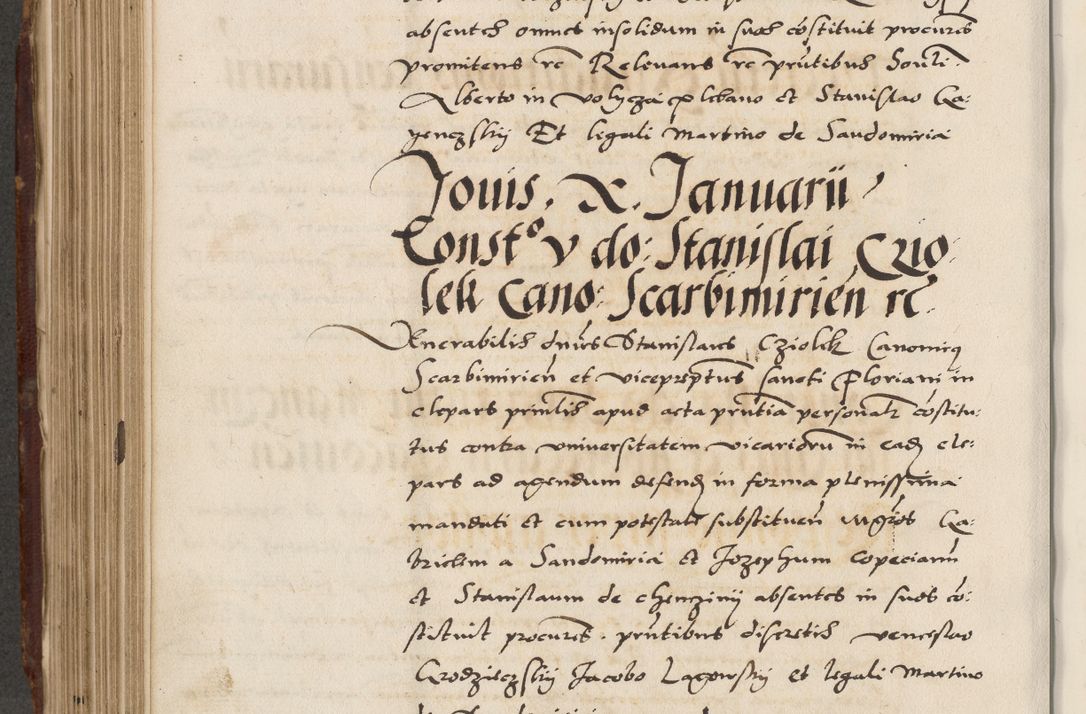 absentes omnes insolidum in suos cōstituit procures
promitens rc Relevans rc prñtibus Souli.
Alberto in Volycza plebano et Stanislao Ga:
yenczskij Et legali Martino de Sandomiria
Jouis . X . Januarii
Constº v do: Stanislai Czio:
lek Cano: Scarbimirien̄ rc.
Venerabilis dn̄us Stanislaus Cziolek Canonicus
Scarbimirien̄ et viceprep̄tus sancti Floriani in
cleparz prin̄lis apud acta prn̄tia personalr cōstitu:
tus contra universitatem vicariorum in eadz cle:
parz ad agendum defendz in forma plenissima
mandati et cum potestate substituen̄ mgros Ga:
brielem a Sandomiria et Jozephum copecianū
et Stanislaum de chenczinij absentes in suos cō:
stituit procures . prn̄tibus discretis venceslao
Grodziczskij Jacobo Lagowskij et legali Martino